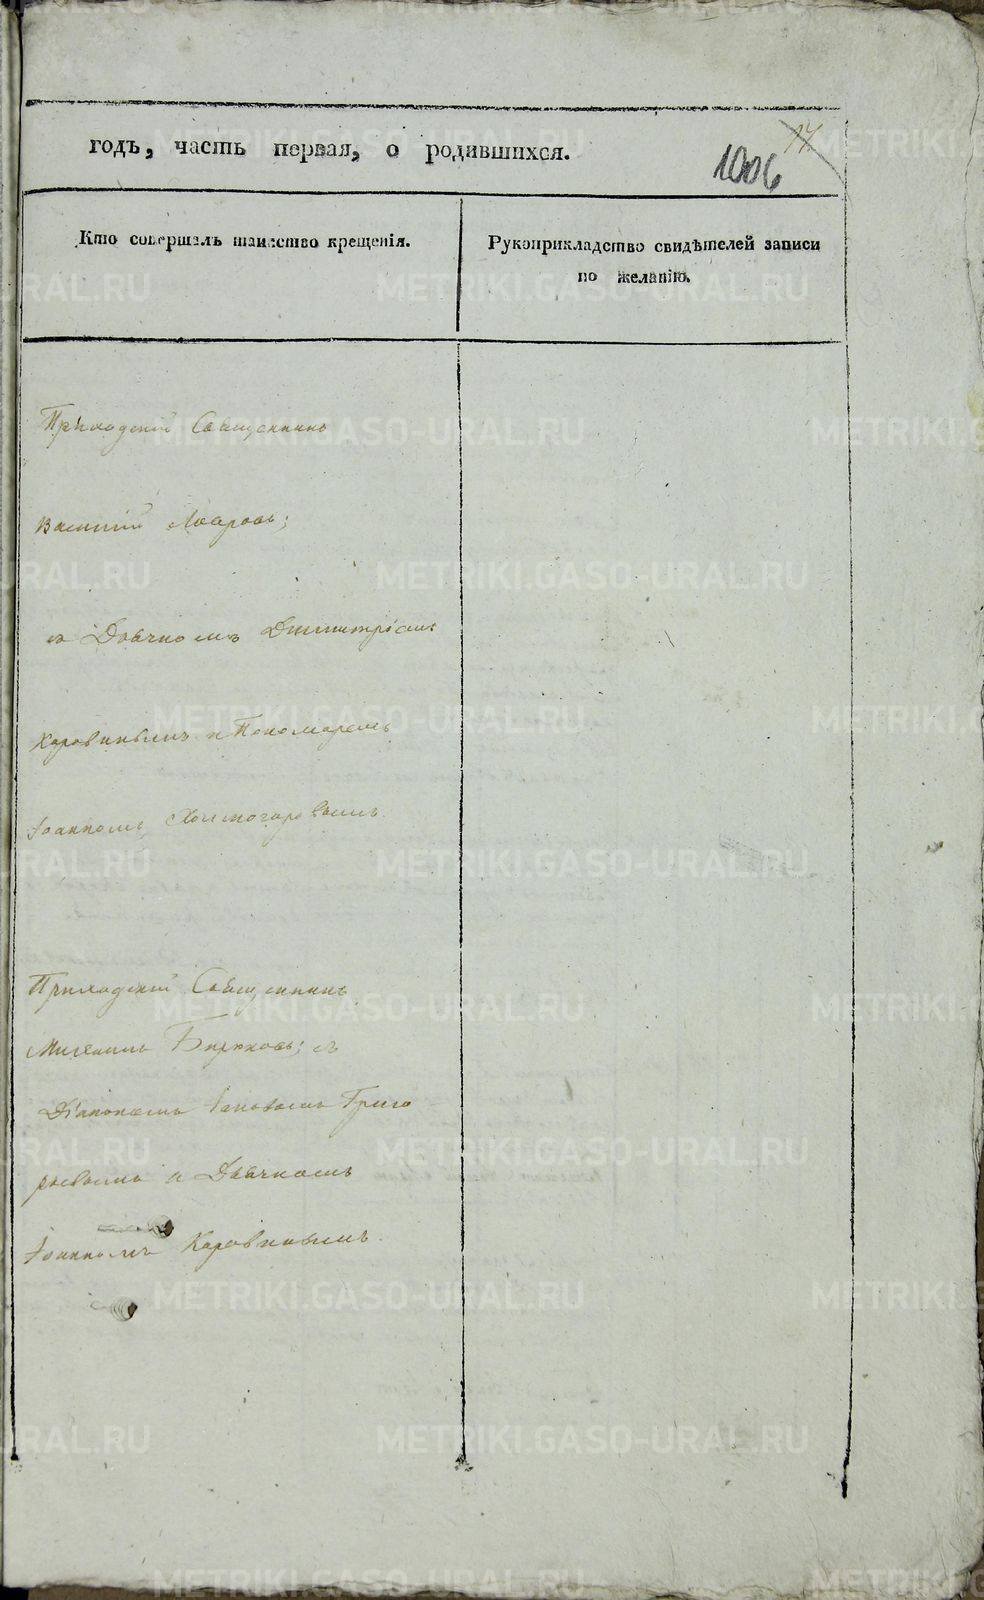 годъ, часть первая, о родившихся.
1006
17
Кто совершалъ таинство крещенія.
Рукоприкладство свидѣтелей записи
по желанію.
Приходскій Священникъ
Василій Лавровъ;
съ Дьячкомъ Димитріемъ
Коровинымъ и Пономаремъ
Іоанномъ Холмогоровымъ
Приходскій Священникъ
Михаилъ Бирюковъ; съ
Діакономъ Іаковомъ Григо
рьевымъ и Дьячкомъ
Іоанномъ Коровинымъ.
METRIKI.GASO-URAL.RU